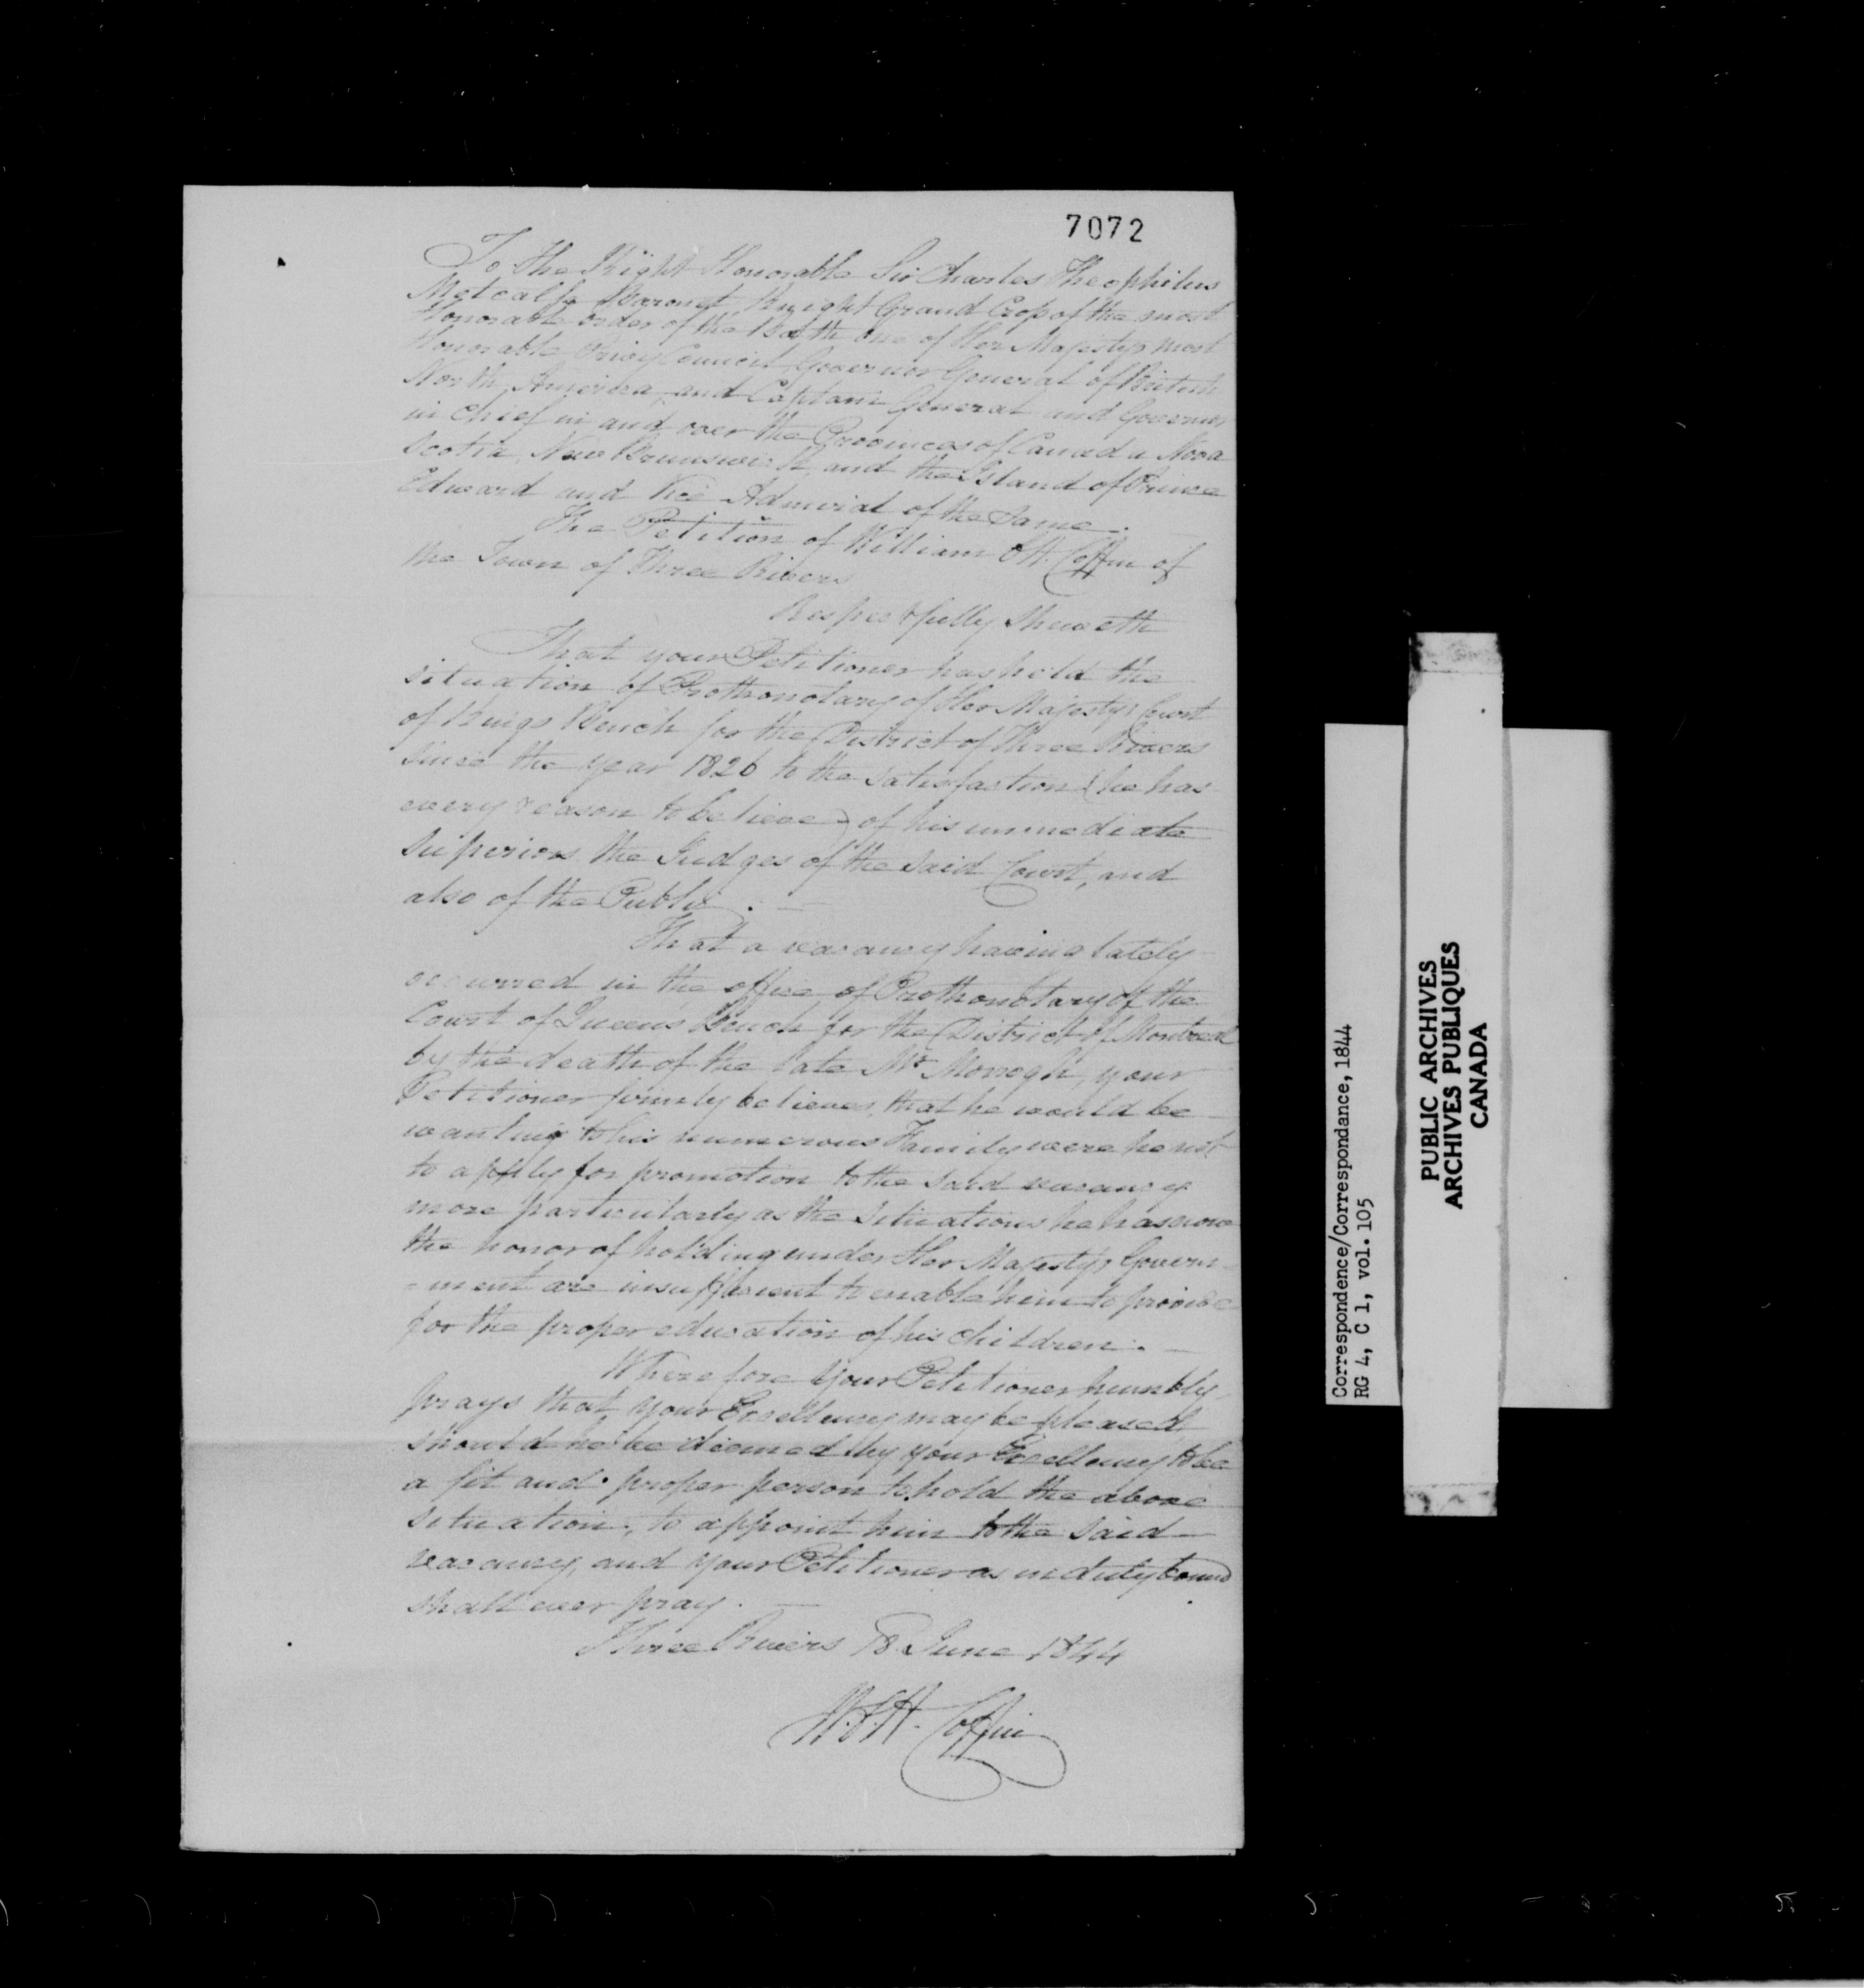 7072
To the Right Honorable Sir Charles Theophilus
Metcalfe Baronet, Knight Grand Cross of the most
Honorable order of the Bath one of Her Majestys most
Honorable Privy Council, Governor General of British
North America, and Captain General and Governor
in chief in and over the Provinces of Canada Nova
Scotia New Brunswick, and the Island of Prince
Edward and Vice Admiral of the same.
The Petition of William Coffin of
the Town of Three Rivers
Respectfully Sheweth
That your Petitioner has held the
situation of Prothonotary of Her Majestys Court
of Kings Bench for the District of Three Rivers
since the year 1826 to the satisfaction (he has
every reason to believe) of his immediate
superiors the Judges of the said Court, and
also of the Public. —
That a vacancy having lately
occurred in the office of Prothonotary of the
Court of Queens Bench for the District of Montreal
by the death of the late Mr Monogh, your
Petitioner firmly believes that he would be
wanting to his numerous Family were he not
to apply for promotion to the said vacancy
more particularly as the situations he has now
the honor of holding under Her Majestys Govern-
-ment are insufficient to enable him to provide
for the proper education of his children. —
Wherefore your Petitioner humbly
prays that your Excellency may be pleased,
should he be diemed by your Excellency to be
a fit and proper person to hold the above
situation, to appoint him to the said
vacancy, and your Petitioner as in duty bound
shall ever pray. —
Three Rivers 18 June 1844
Coffin
Correspondence/Correspondance, 1844
RG 4, C 1, vol. 105
PUBLIC ARCHIVES
ARCHIVES PUBLIQUES
CANADA